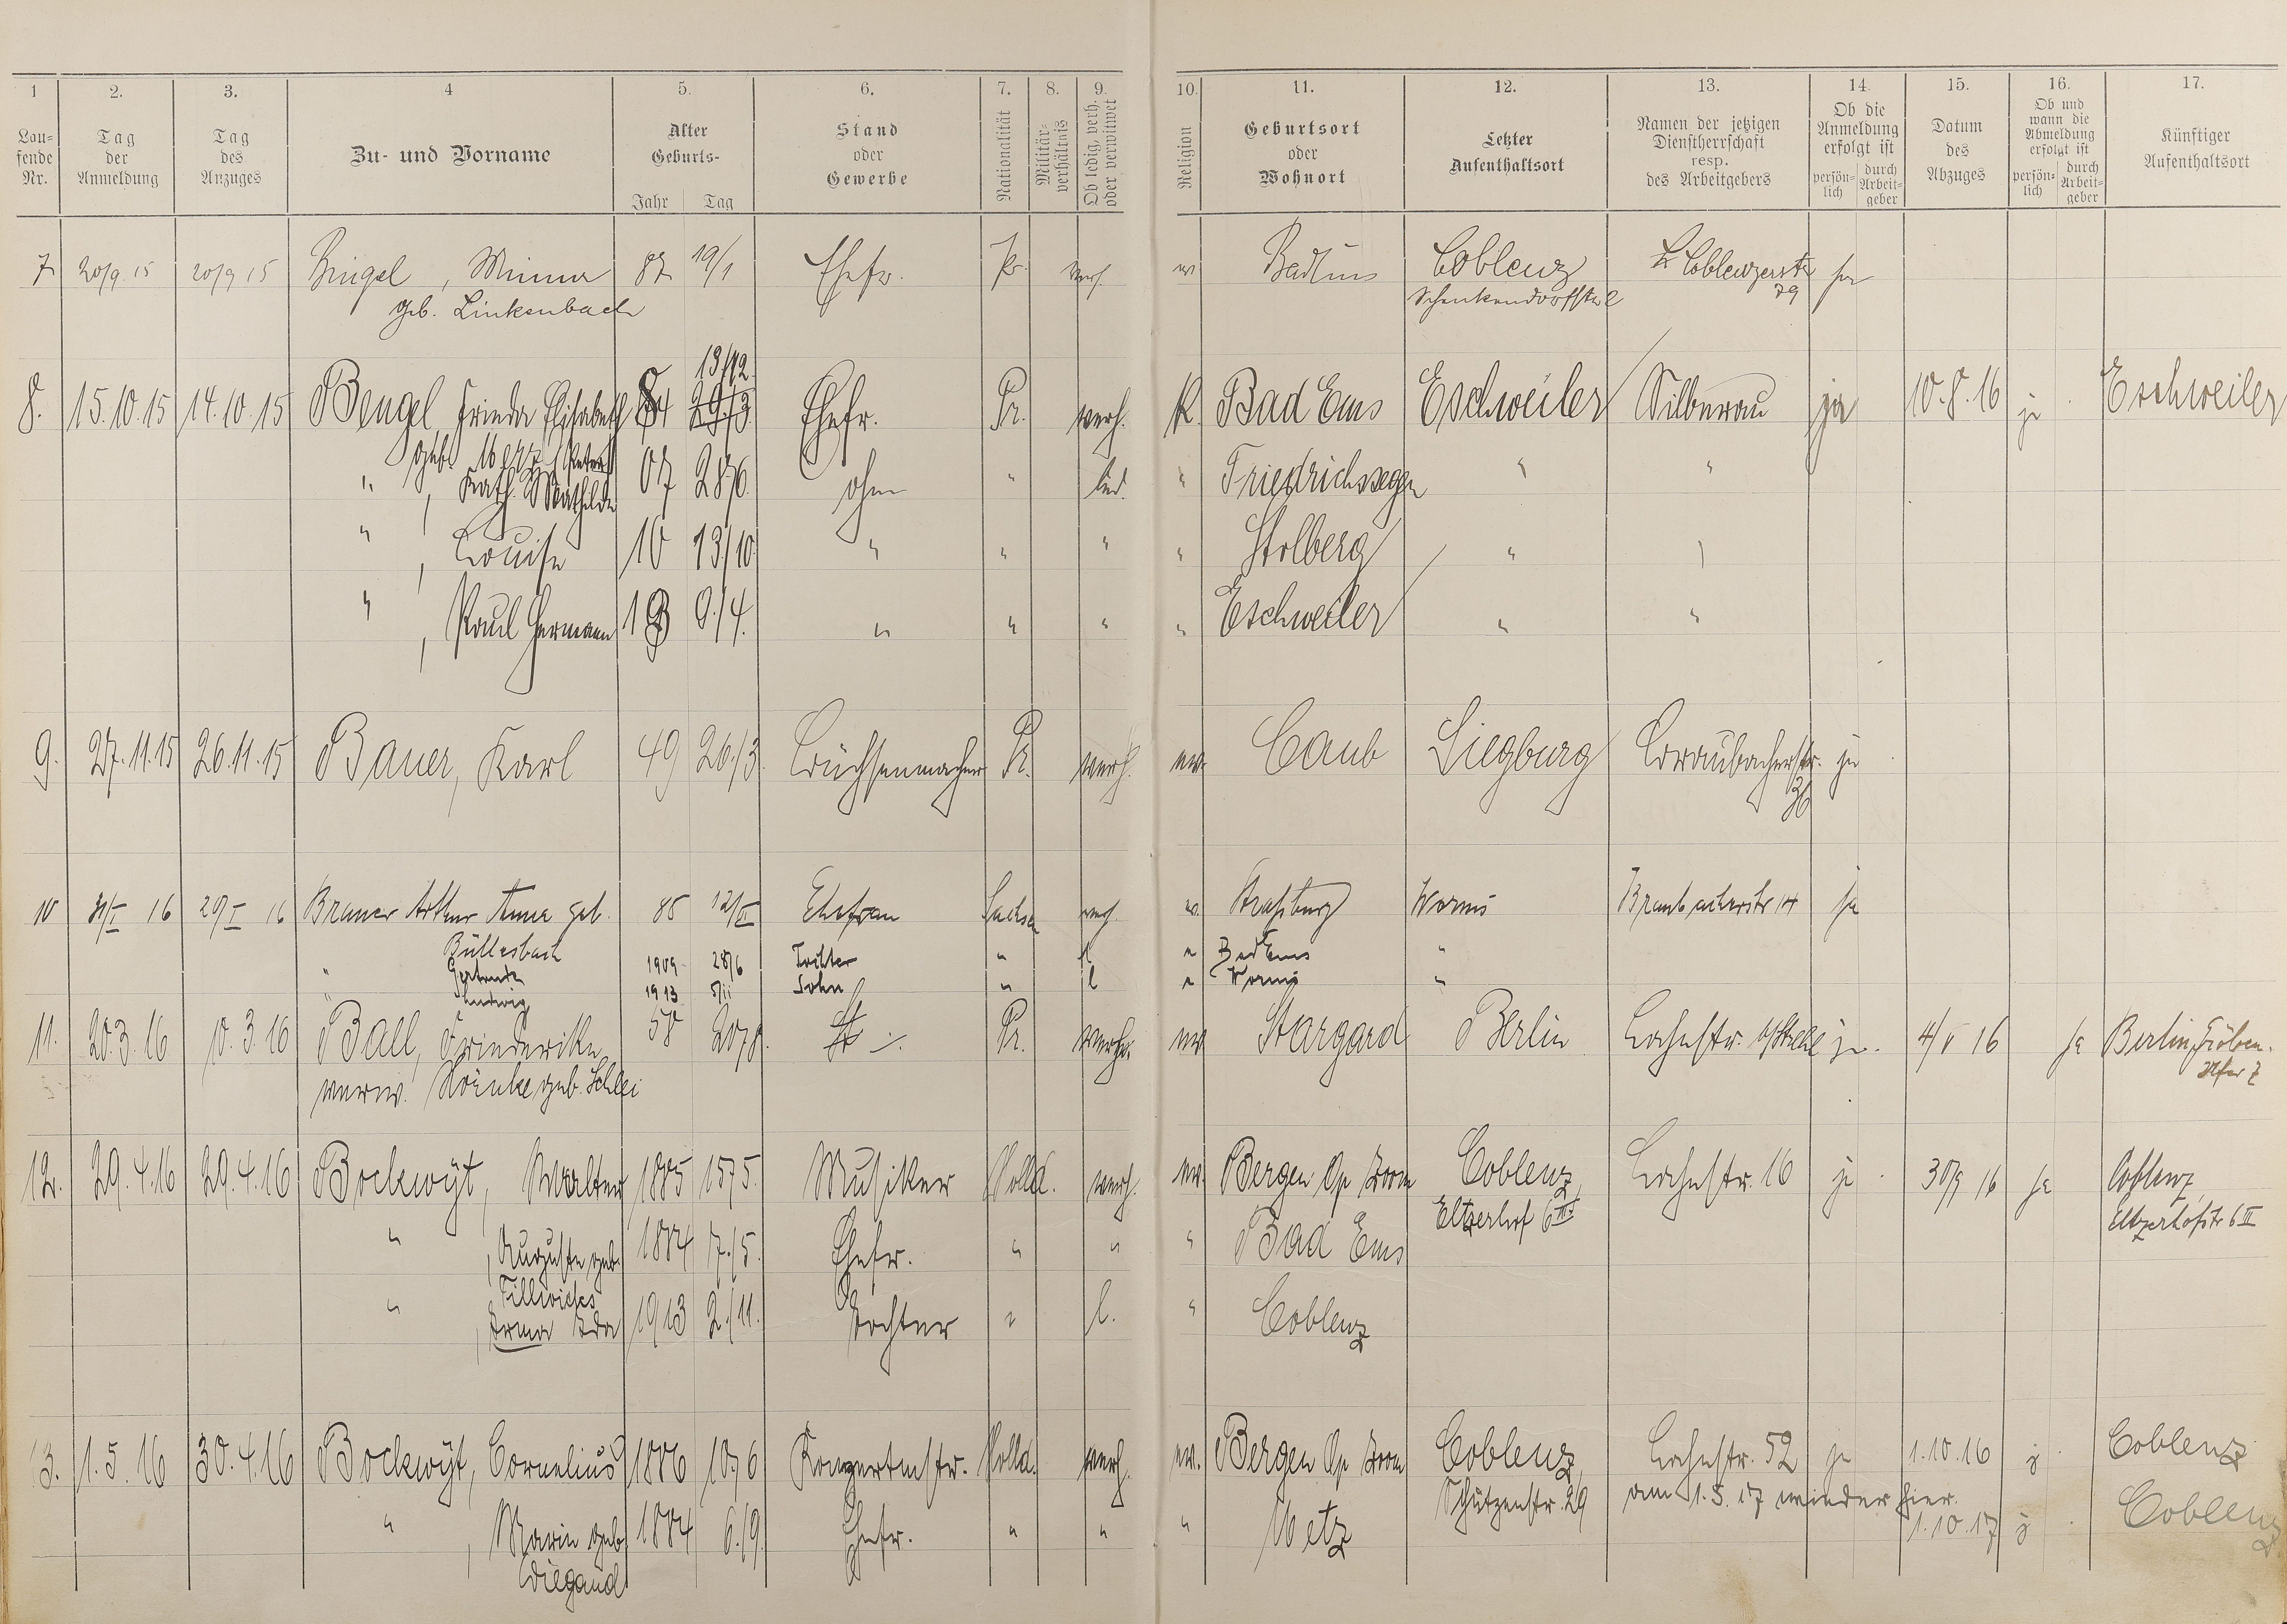 1 2. 3. 4 5. 6. 7. 8. 9. 10. 11. 12. 13. 14. 15. 16. 17.
Lau=
fende
Nr.
Tag
der
Anmeldung
Tag
des
Anzuges
Zu- und Vorname
Alter
Geburts-
Jahr Tag
Stand
oder
Gewerbe
Nationalität
Militär-
verhältnis
Ob ledig, verh.
oder verwitwet
Religion
Geburtsort
oder
Wohnort
Letzter
Aufenthaltsort
Namen der jetzigen
Dienstherrschaft
resp.
des Arbeitgebers
Ob die
Anmeldung
erfolgt ist
persön=
lich
durch
Arbeit=
geber
Datum
des
Abzuges
Ob und
wann die
Abmeldung
erfolgt ist
persön=
lich
durch
Arbeit=
geber
Künftiger
Aufenthaltsort
7 20/9. 15 20/9 15 Bingel, Minna 87 19/1 Ehefr. Pr. verh. ev Bad Ems Coblenz Coblenzerstr ja
geb. Linkenbach 79
13/12.
8. 15.10.15 14.10.15 Bengel, Frieda Elisabeth 84 29/3. Ehefr. Pr. verh. K. Bad Ems Eschweiler Silberau ja 10.8.16 ja Eschweiler
geb. Merz
" , Kath. Mathilde 07 28/6. ohne " led. " Friedrichssegen " "
" , Louise 10 13/10. " " " " Stolberg "
" , Paul Hermann 13 9./4. " " " " Eschweiler " "
9. 27.11.15 26.11.15 Bauer, Karl 49 26./3. Büchsenmacher Pr. verh. ev. Caub Siegburg Braubacherstr. ja
36
10 31/I 16 29/I 16 Brauer Arthur Anna geb. 85 12/II Ehefrau Sachsen verh. ev. Straßburg Worms Braubacherstr 14 ja
Büllesbach
" Gertrude 1909 28/6 Tochter " l " Bad Ems "
" Ludwig 1913 5/ii Sohn " l " Worms "
11. 20.3.16 10.3.16 Ball, Friederike 58 20/8. Pr. ev Stargard Berlin Lahnstr. ja. 4/V 16 ja Berlin, Gröben-
verw. geb. Schlei Ufer 7
12. 29.4.16 29.4.16 Bockwyt, Walter 1885 15/5. Musiker Holld. verh. ev. Bergen Op Zoom Coblenz, Lahnstr. 16 ja 30/9 16 ja Coblenz,
Eltzerhof 6 III Eltzerhofstr 6 II
" , Auguste geb. 1884 7./5. Ehefr. " " " Bad Ems
" , Irma Ida 1913 2./11. Tochter " l. " Coblenz
13. 1.5.16 30.4.16 Bockwyt, Cornelius 1886 10/6 Konzertmstr. Holld. verh. ev. Bergen Op Zoom Coblenz, Lahnstr. 52 ja 1.10.16 j Coblenz
Schützenstr. 29 am 1.5.17 wieder hier.
" , Marie geb. 1884 6./9. Ehefr. " " " Metz 1.10.17 j Coblenz
Wiegand